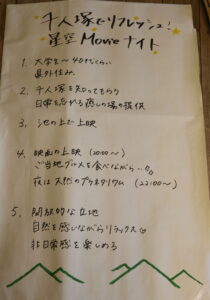 千人塚でリフレッシュ!
星空Movieナイト
1. 大学生〜40才くらい
県外住み
2. 千人塚を知ってもらう
日常を忘れる癒しの場の提供
3. 池の上で上映
4. 映画の上映 (20:00〜)
ご当地グルメを食べながら…
夜は天然のプラネタリウム (22:00〜)
5. 開放的な立地
自然を感じながらリラックス
非日常感を楽しめる